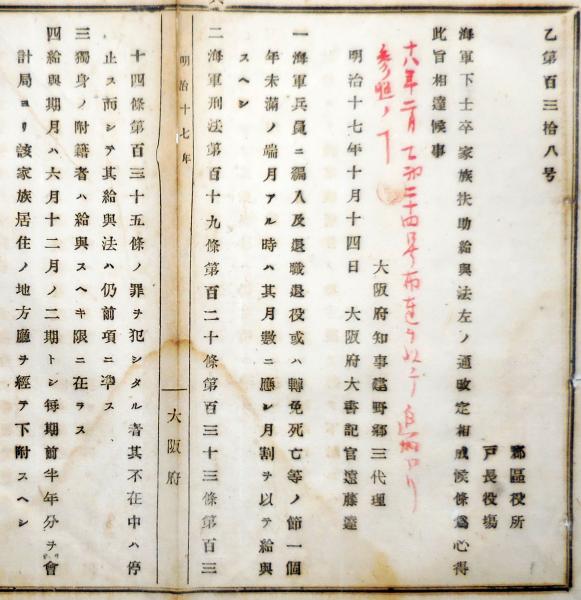 乙第百三拾八号
郡區役所
戸長役塲
海軍下士卒家族扶助給與法左ノ通改定相成候條爲心得
此旨相達候事
十八年二月乙第二十四号布達ヲ以テ追加アリ
參照ノ
明治十七年十月十四日
大阪府知事建野郷三代理
大阪府大書記官遠藤達
一海軍兵員ニ編入及退職退役或ハ轉免死亡等ノ節一個
年未滿ノ端月アル時ハ其月數ニ應シ月割ヲ以テ給與
スヘシ
二海軍刑法第百十九條第百二十條第百三十三條第百三
明治十七年
大阪府
十四條第百三十五條ノ罪ヲ犯シタル者其不在中ハ停
止ス而シテ其給與法ハ仍前項ニ準ス
三獨身ノ附籍者ハ給與スヘキ限ニ在ラス
四給與期月ハ六月十二月ノ二期トシ毎期前半年分ヲ會
計局ヨリ該家族居住ノ地方廳ヲ經テ下附スヘシ